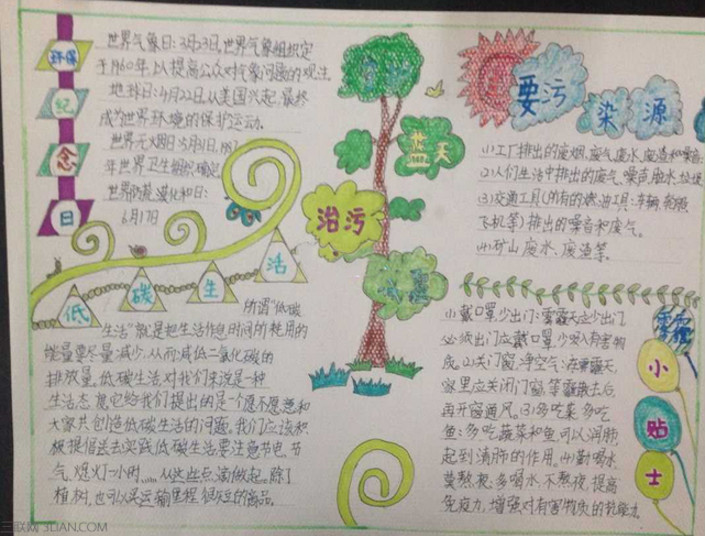 环保
纪
念
日
世界气象日:3月23日,世界气象组织定
于1960年,以提高公众对气象问题的观注。
地球日:4月22日,从美国兴起,最终
成为世界环境的保护运动。
世界无烟日:5月31日,
年世界卫生组织确定
世界防荒漠化和日:
6月17日
低
碳
生
活
所谓“低碳
生活”就是把生活作息时间所耗用的
能量要尽量减少,从而减低二氧化碳的
排放量。低碳生活对我们来说是一种
生活态度,它给我们提出的是个愿不愿意和
大家共创造低碳生活的问题。我们应该积
极提倡去实践低碳生活要注意节电、节
气、熄灯一小时……从这些点滴做起。除了
植树,也可以买运输里程很短的商品。
蓝天
治污
主要污
染
源
(1)工厂排出的废烟、废气、废水、废渣和噪音;
(2)人们生活中排出的废气、噪声、脏水、垃圾
(3)交通工具(所有的燃油工具:车辆、轮船、
飞机等)排出的噪音和废气。
(4)矿山废水、废渣等。
雾霾
小
贴
士
(1)戴口罩少出门:雾霾天应少出门,
必须出门应戴口罩,少吸入有害物
质。(2)关门窗,净空气:在雾霾天,
家里应关闭门窗,等雾散去后,
再开窗通风。(3)多吃菜多吃
鱼:多吃蔬菜和鱼,可以润肺,
起到清肺的作用。(4)勤喝水
莫熬夜:多喝水,不熬夜,提高
免疫力,增强对有害物质的抵抗力。
三联网 3LIAN.COM